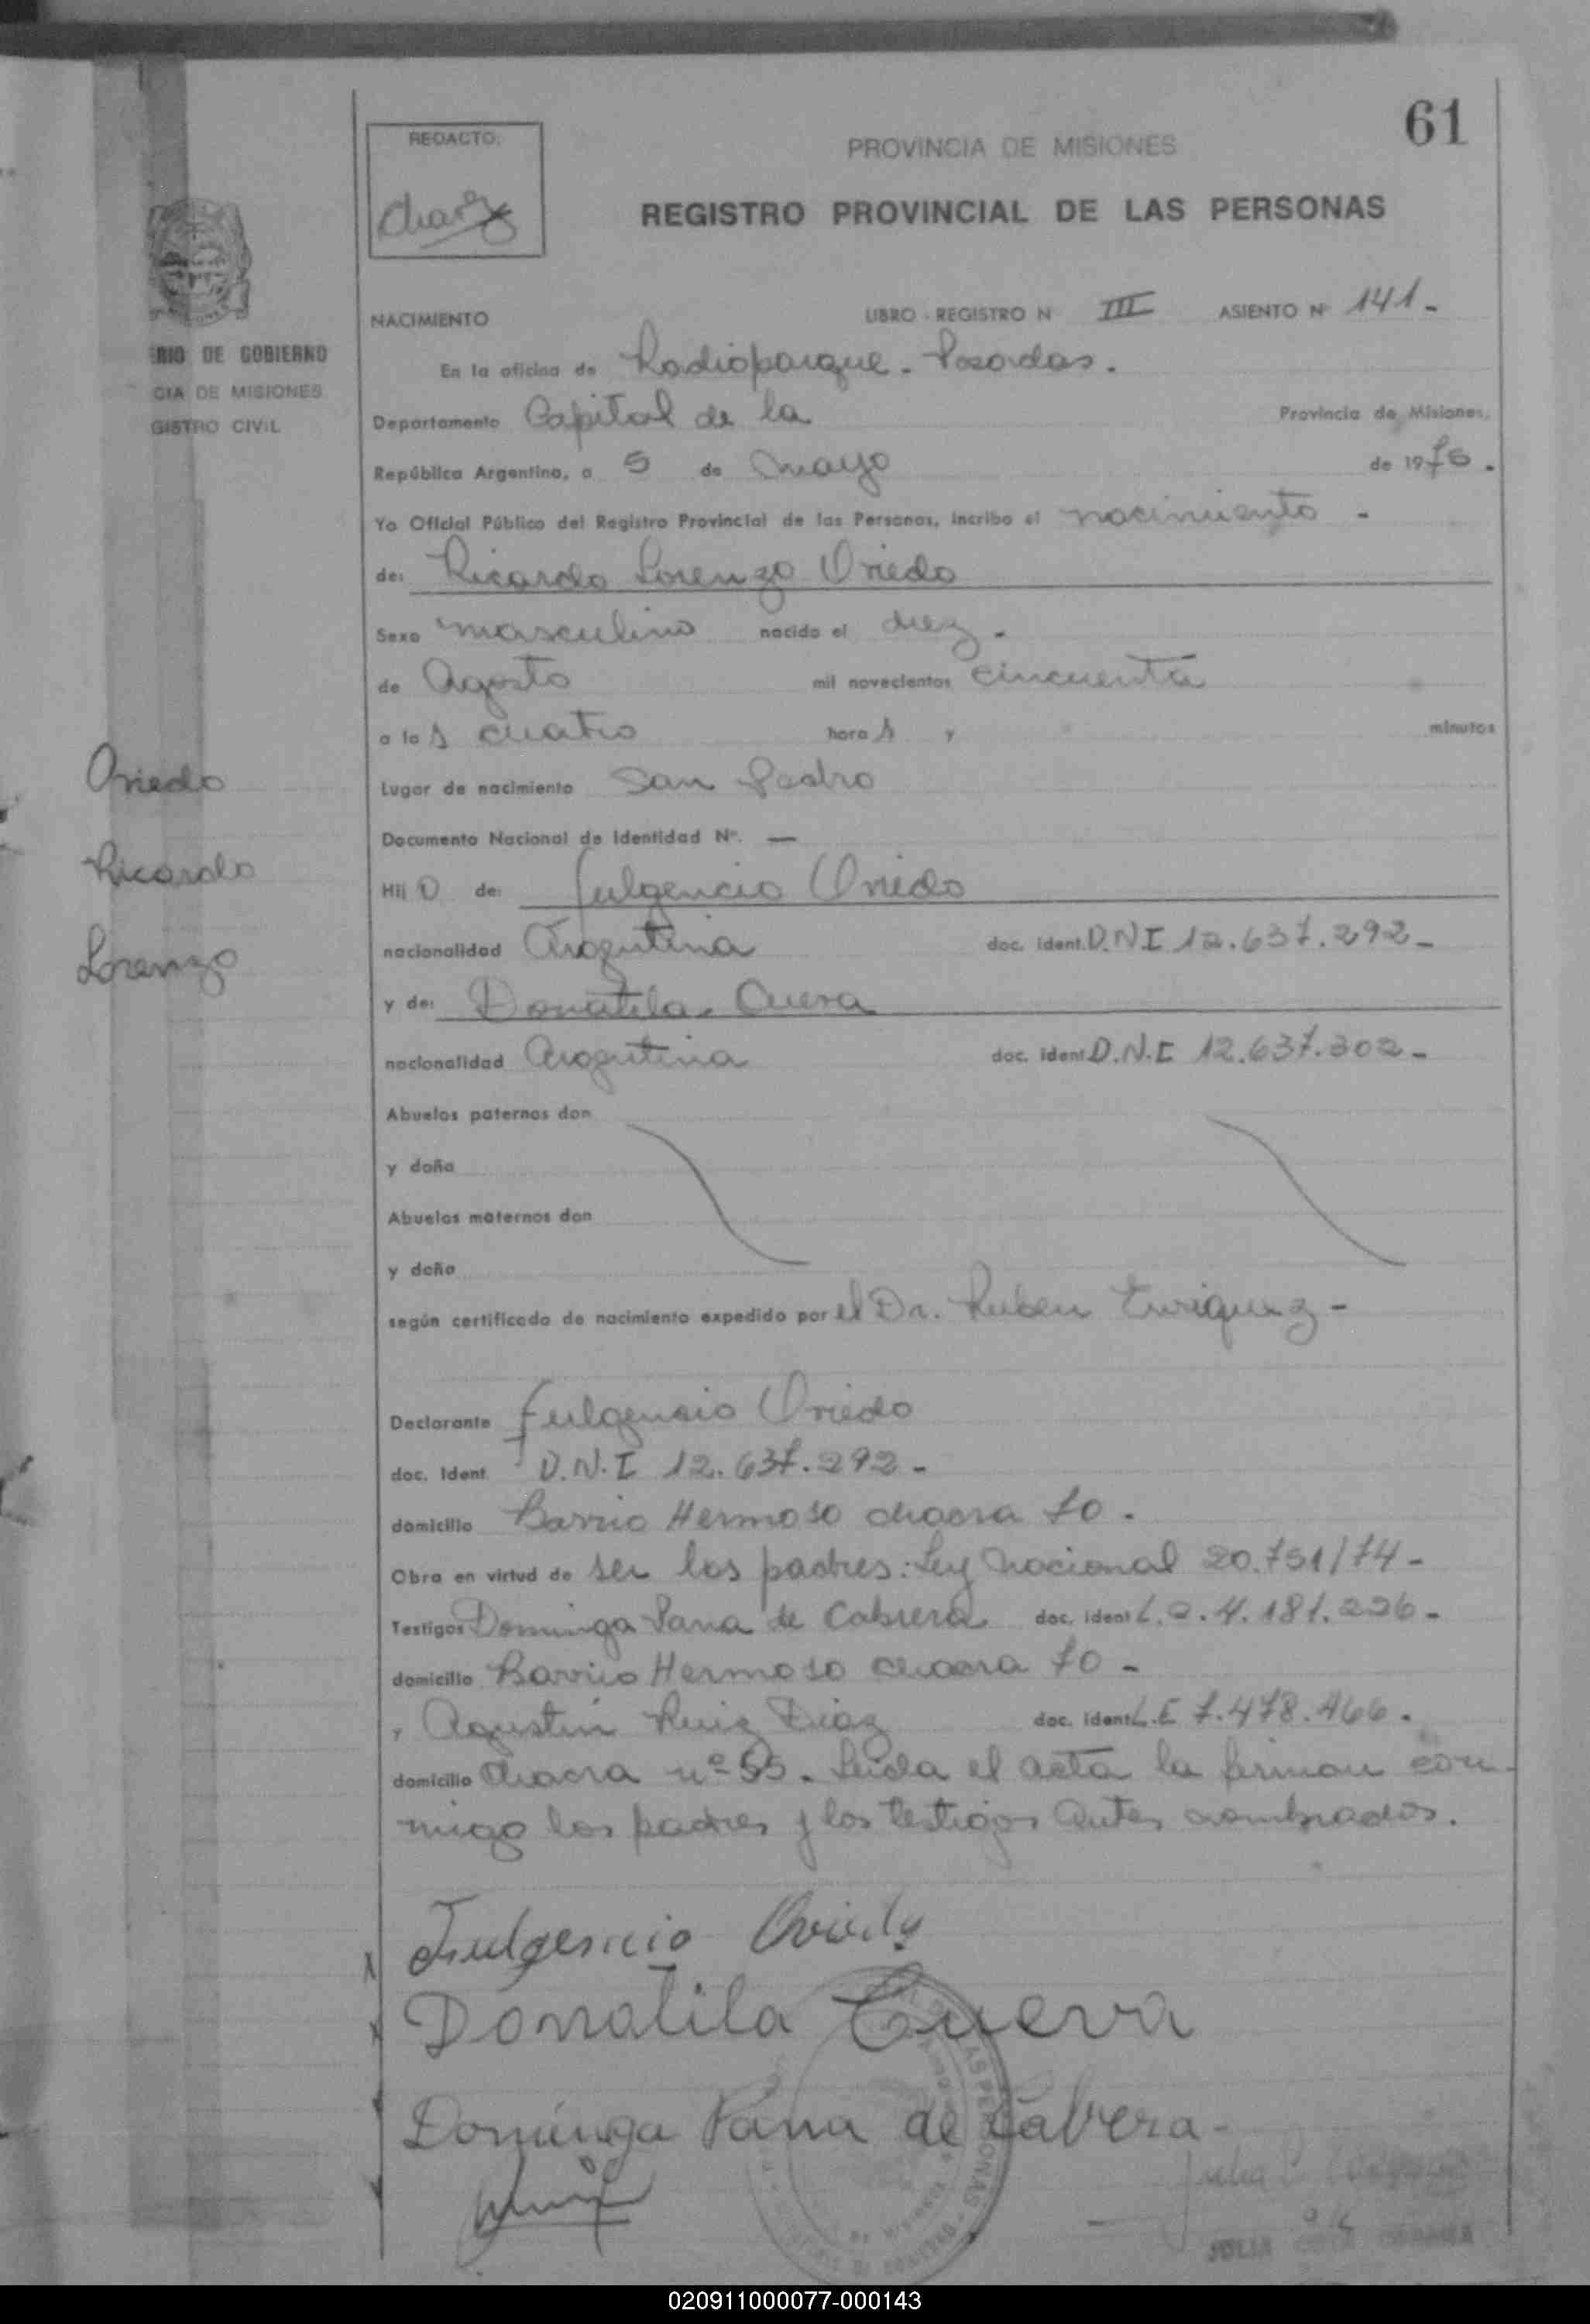 61
REDACTO:
PROVINCIA DE MISIONES
REGISTRO PROVINCIAL DE LAS PERSONAS
NACIMIENTO LIBRO - REGISTRO N III ASIENTO Nº 141.-
RIO DE GOBIERNO
CIA DE MISIONES
GISTRO CIVIL
En la oficina de Radioparque - Posadas.
Departamento Capital de la Provincia de Misiones,
República Argentina, a 5 de Mayo de 1976.
Yo Oficial Público del Registro Provincial de las Personas, incribo el nacimiento -
de: Ricardo Lorenzo Oviedo
Sexo masculino nacido el diez.
de Agosto mil novecientos cincuenta
a las cuatro horas y minutos
Oviedo
Ricardo
Lorenzo
Lugar de nacimiento San Pedro
Documento Nacional de Identidad Nº. —
Hijo de: Fulgencio Oviedo
nacionalidad Argentina doc. ident. D.N.I 12.637.292-
y de: Donatila Cueva
nacionalidad Argentina doc. ident D.N.I 12.637.302-
Abuelos paternos don
y doña
Abuelos maternos don
y doña
según certificado de nacimiento expedido por el Dr. Ruben Enriquez -
Declarante Fulgencio Oviedo
doc. Ident. D.N.I 12.637.292-
domicilio Barrio Hermoso chacra 70.
Obra en virtud de ser los padres: Ley Nacional 20.751/74-
Testigos Dominga Pana de Cabrera doc. ident L.C. 4.181.226-
domicilio Barrio Hermoso chacra 70-
y Agustín Ruiz Diaz doc. ident L.E 7.478.466.
domicilio Chacra nº 55. Leida el acta la firman con-
migo los padres y los testigos antes nombrados.
Fulgencio Oviedo
Donatila Cueva
Dominga Pana de Cabrera-
JULIA
020911000077-000143